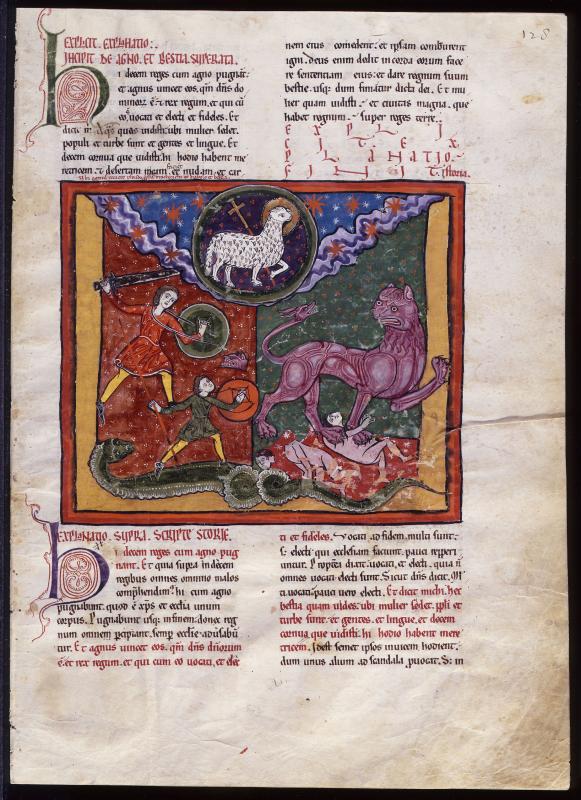 128
EXPLICIT. EXPLANATIO:.
INCIPIT DE AGNO. ET BESTIA SUPERATA.
Hi decem reges cum agno pugnant
et agnus vincet eos. qm dns do
minorum est et rex regum. et qui cu
eo vocati et electi et fideles. Et
dicit m. aqs quas vidisti ubi mulier sedet.
populi et turbe sunt et gentes et lingue. Et
decem cornua que vidisti. hi hodio habent me
retricem. et desertam faciet et nudam. et car
nem eius comedent. et ipsam comburent
igni. Deus enim dedit in corda eorum face
re sententiam eius: et dare regnum suum
bestie. usq; dum finiatur dicta dei. Et mu
lier quam vidisti. et civitas magna. que
habet regnum super reges terre.
EXPLI
CIT. EX
PLANATIO.
storia.
EXPLANATIO. SUPRA. SCRIPTE STORIE.
Hi decem reges cum agno pug
nant. Et qua supra in decem
regibus omnes omnino malos
comphendim. hi cum agno
pugnabunt. quod e xps et ecclia unum
corpus. Pugnabunt usq; in finem. donec reg
num omnem pcipiant. semp ecclie
tur. Et agnus vincet eos. qm dns dnorum
e. et rex regum. et qui cum eo vocati. et elec
ti et fideles. Vocati ad fidem. multi sunt:
s; electi qui ecclesiam faciunt. pauci repperi
untur. Propterea dixit. vocati. et electi. quia n
omnes vocati electi sunt. Sicut dns dicit. M
ti vocati. pauci vero electi. Et dicit michi. hec
bestia quam vides. ubi mulier sedet. ppli et
turbe sunt. et gentes. et lingue. et decem
cornua que vidisti. hi hodio habent mere
tricem. Idest semet ipsos invicem hodient.
dum unus alium ad scandala pvocat. S; in